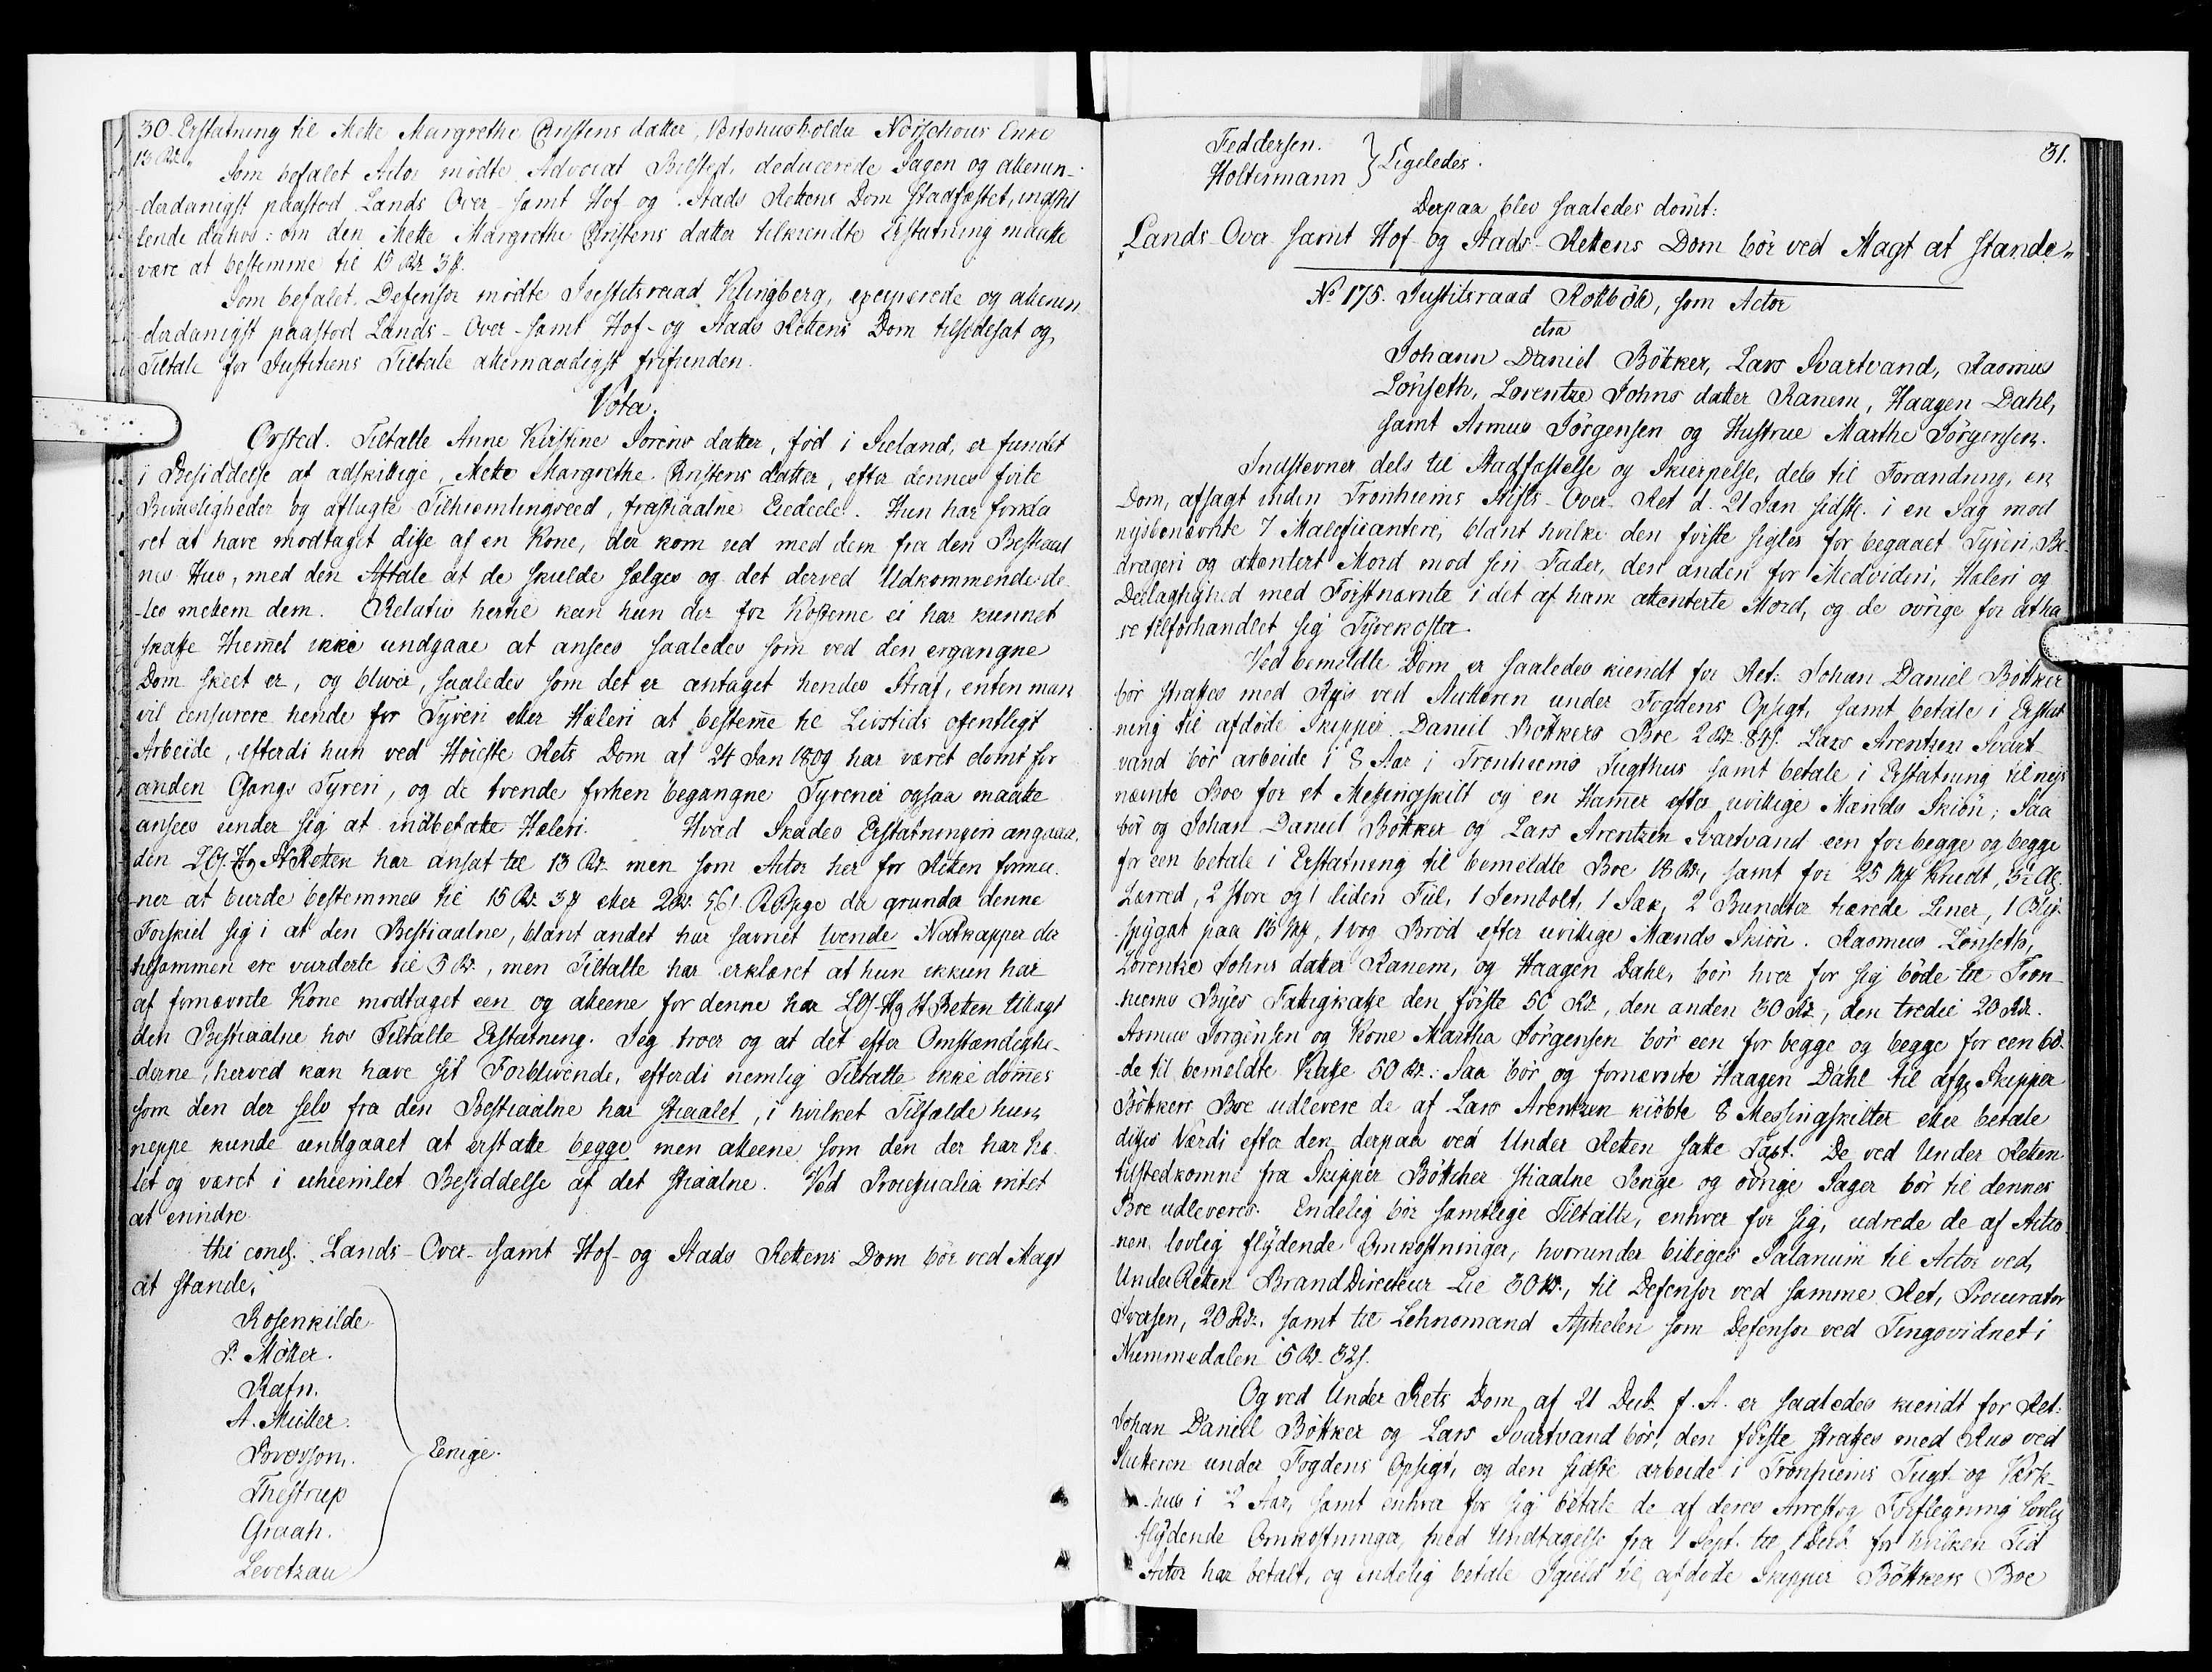 30. Erstatning til Mette Margrethe Christens datter, Vertshusholder Nörschous Enke
13 Rd.
Som befalet Actor mödte Advocat Bersted, deducerede Sagen og allerun-
derdanigst paastod Lands Over- samt Hof og Stads Rettens Dom stadfæstet, indstil
lende dahos: om den Mette Margrethe Christens datter tilkiendte Erstatning maatte
være at bestemme til 15 Rd 3 ß.
Som befalet Defensor mödte Justitsraad Klingberg, exciperede og allerun
derdanigst paastod Lands- Over- samt Hof- og Stads Rettens Dom tilsidesat og
Tiltalte for Justitiens Tiltale allernaadigst frifunden.
Vota.
Orsted. Tiltalte Anne Kirstine Sorens datter, föd i Sieland, er fundet
i Besiddelse af adskillige, Mette Margrethe Christens Datter, efter dennes forte
Beviisligheder og aflagte Tilhiemlingseed, frastiaalne Eiedeele. Hun har forkla
ret at have modtaget disse af en Kone, der kom ud med dem fra den Bestiaal
nes Huus, med den Aftale at de skulde sælges og det derved Udkommende de
les mellem dem. Relativ hertil kan hun der for Kosterne ei har kunnet
skaffe Hiemel ikke undgaae at ansees saaledes som ved den ergangne
Dom skeet er, og bliver, saaledes som det er antaget hendes Straf, enten man
vil censurere hende for Tyveri eller Hæleri at besteme til Livstids ofentligt
Arbeide, efterdi hun ved Höieste Rets Dom af 24 Jan 1809 har været dömt for
anden Gangs Tyveri, og de tvende forhen begangne Tyverier ogsaa maatte
ansees under sig at indbefatte Hæleri. Hvad Skades Erstatningen angaaer,
den LOs. Hg St Retten har ansat til 13 Rd men som Actor her for Retten forme-
ner at burde bestemmes til 15 Rd 3 ß eller 2 Rd. 56 ß. R. Penge da grunder denne
Forskiel sig i at den Bestiaalne, blant andet har savnet tvende Natkapper der
tilsammen ere vurderte til 5 Rd., men Tiltalte har erklæret at hun ikkun har
af fornævnte Kone modtaget een og alleene for denne har LOs-Hg St Retten tillagt
den Bestiaalne hos Tiltalte Erstatning. Jeg troer og at det efter Omstændighe-
derne, herved kan have sit Forblivende, efterdi nemlig Tiltalte ikke dömes
som den der selv fra den Bestiaalne har stiaalet, i hvilket Tilfælde hun
neppe kunde undgaaet at erstatte begge men alleene som den der har hæ
let og været i uhiemlet Besiddelse af det stiaalne. Ved Processualia intet
at erindre.
thi conds. Lands- Over- samt Hof- og Stads Rettens Dom bör ved Magt
at stande.
Rosenkilde.
P. Möller.
Rafn.
A. Müller.
Brorson.
Thestrup
Graah.
Levetzau
Eenige.
31.
Feddersen.
Holtermann
Ligeledes.
Derpaa blev saaledes dömt:
Lands-Over samt Hof- og Stads-Rettens Dom bör ved Magt at stande.
No 175. Justitsraad Rottböll, som Actor
ctra
Johann Daniel Bötker, Lars Svartvand, Rasmus
Lönseth, Lorentze Johns datter Ranem, Haagen Dahl,
samt Asmus Jörgensen og Hustrue Marthe Jörgensen.
Indstevner dels til Stadfæstelse og Skierpelse, dels til Forandring, en
Dom, afsagt inden Tronhiems Stifts-Over-Ret d. 21 Jan sidstl. i en Sag mod
nysbenævnte 7 Maleficantere, blant hvilke den förste sigtes for begaaet Tyveri, Be
drageri og attentert Mord mod sin Fader, den anden for Medvideri, Hæleri og
Deelagtighed med Förstnævnte i det af ham attenterte Mord, og de övrige for at ha
ve tilforhandlet sig Tyvekoster.
Ved bemeldte Dom er saaledes kiendt for Ret: Johan Daniel Bötker
bör straffes med Riis ved Slutteren under Fogdens Opsigt, samt betale i Erstat
ning til afdöde Skipper Daniel Bötkers Boe 2 Rd. 84 ß. Lars Arentzen Svart
vand bör arbeide i 8 Aar i Tronhiems Tugthus samt betale i Erstatning til nys
nævnte Boe for et Messingskilt og en Hamer efter uvillige Mænds Skiön; Saa
bör og Johan Daniel Bötker og Lars Arentzen Svartvand een for begge og begge
for een betale i Erstatning til bemeldte Boe 18 Rd., samt for 25 Mk Krudt, Al.
Lærred, 2 store og 1 liden Fiil, 1 Jernbolt, 1 Sæk, 2 Bundter tiærede Liner, 1 Bly
spygat paa 18 Mk, 1 vog Bröd efter uvillige Mænds Skiön. Rasmus Lönseth,
Lorentze Johns datter Ranem, og Haagen Dahl, bör hver for sig böde til Tron-
hiems Byes Fattigkasse den förste 50 Rd., den anden 30 Rd., den tredie 20 Rd.
Asmus Jörgensen og Kone Martha Jörgensen bör een for begge og begge for een bö-
de til bemeldte Kasse 50 Rd.: Saa bör og fornævnte Haagen Dahl til afg. Skipper
Bötkers Boe udlevere de af Lars Arentzen kiöbte 8 Messingskilter eller betale
disses Værdi efter den derpaa ved Under Retten satte Taxt. De ved Under Retten
tilstedkomne fra Skipper Böttcher stiaalne Penge og övrige Sager bör til dennes
Boe udleveres. Endelig bör samtlige Tiltalte, enhver for sig, udrede de af Actio
nen lovlig flydende Omkostninger, hvorunder billiges Salarium til Actor ved
Under Retten Brand Directeur Lie 30 Rd., til Defensor ved samme Ret, Procurator
Iversen, 20 Rd. samt til Lehnsmand Aphelen som Defensor ved Tingsvidnet i
Nummedalen 5 Rd. 32 ß.
Og ved Under Rets Dom af 21 Decb. f. A. er saaledes kiendt for Ret:
Johan Daniel Bötker og Lars Svartvand bör, den förste straffes med Riis ved
Slutteren under Fogdens Opsigt, og den sidste arbeide i Tronhiems Tugt- og Værk-
hus i 2 Aar, samt enhver for sig betale de af deres Arrest og Forflegning lovlig
flydende Omkostninger, med Undtagelse fra 1 Sept. til 1 Decb. for hvilken Tid
Actor har betalt, og endelig betale Igield til afdöde Skipper Bötkers Boe